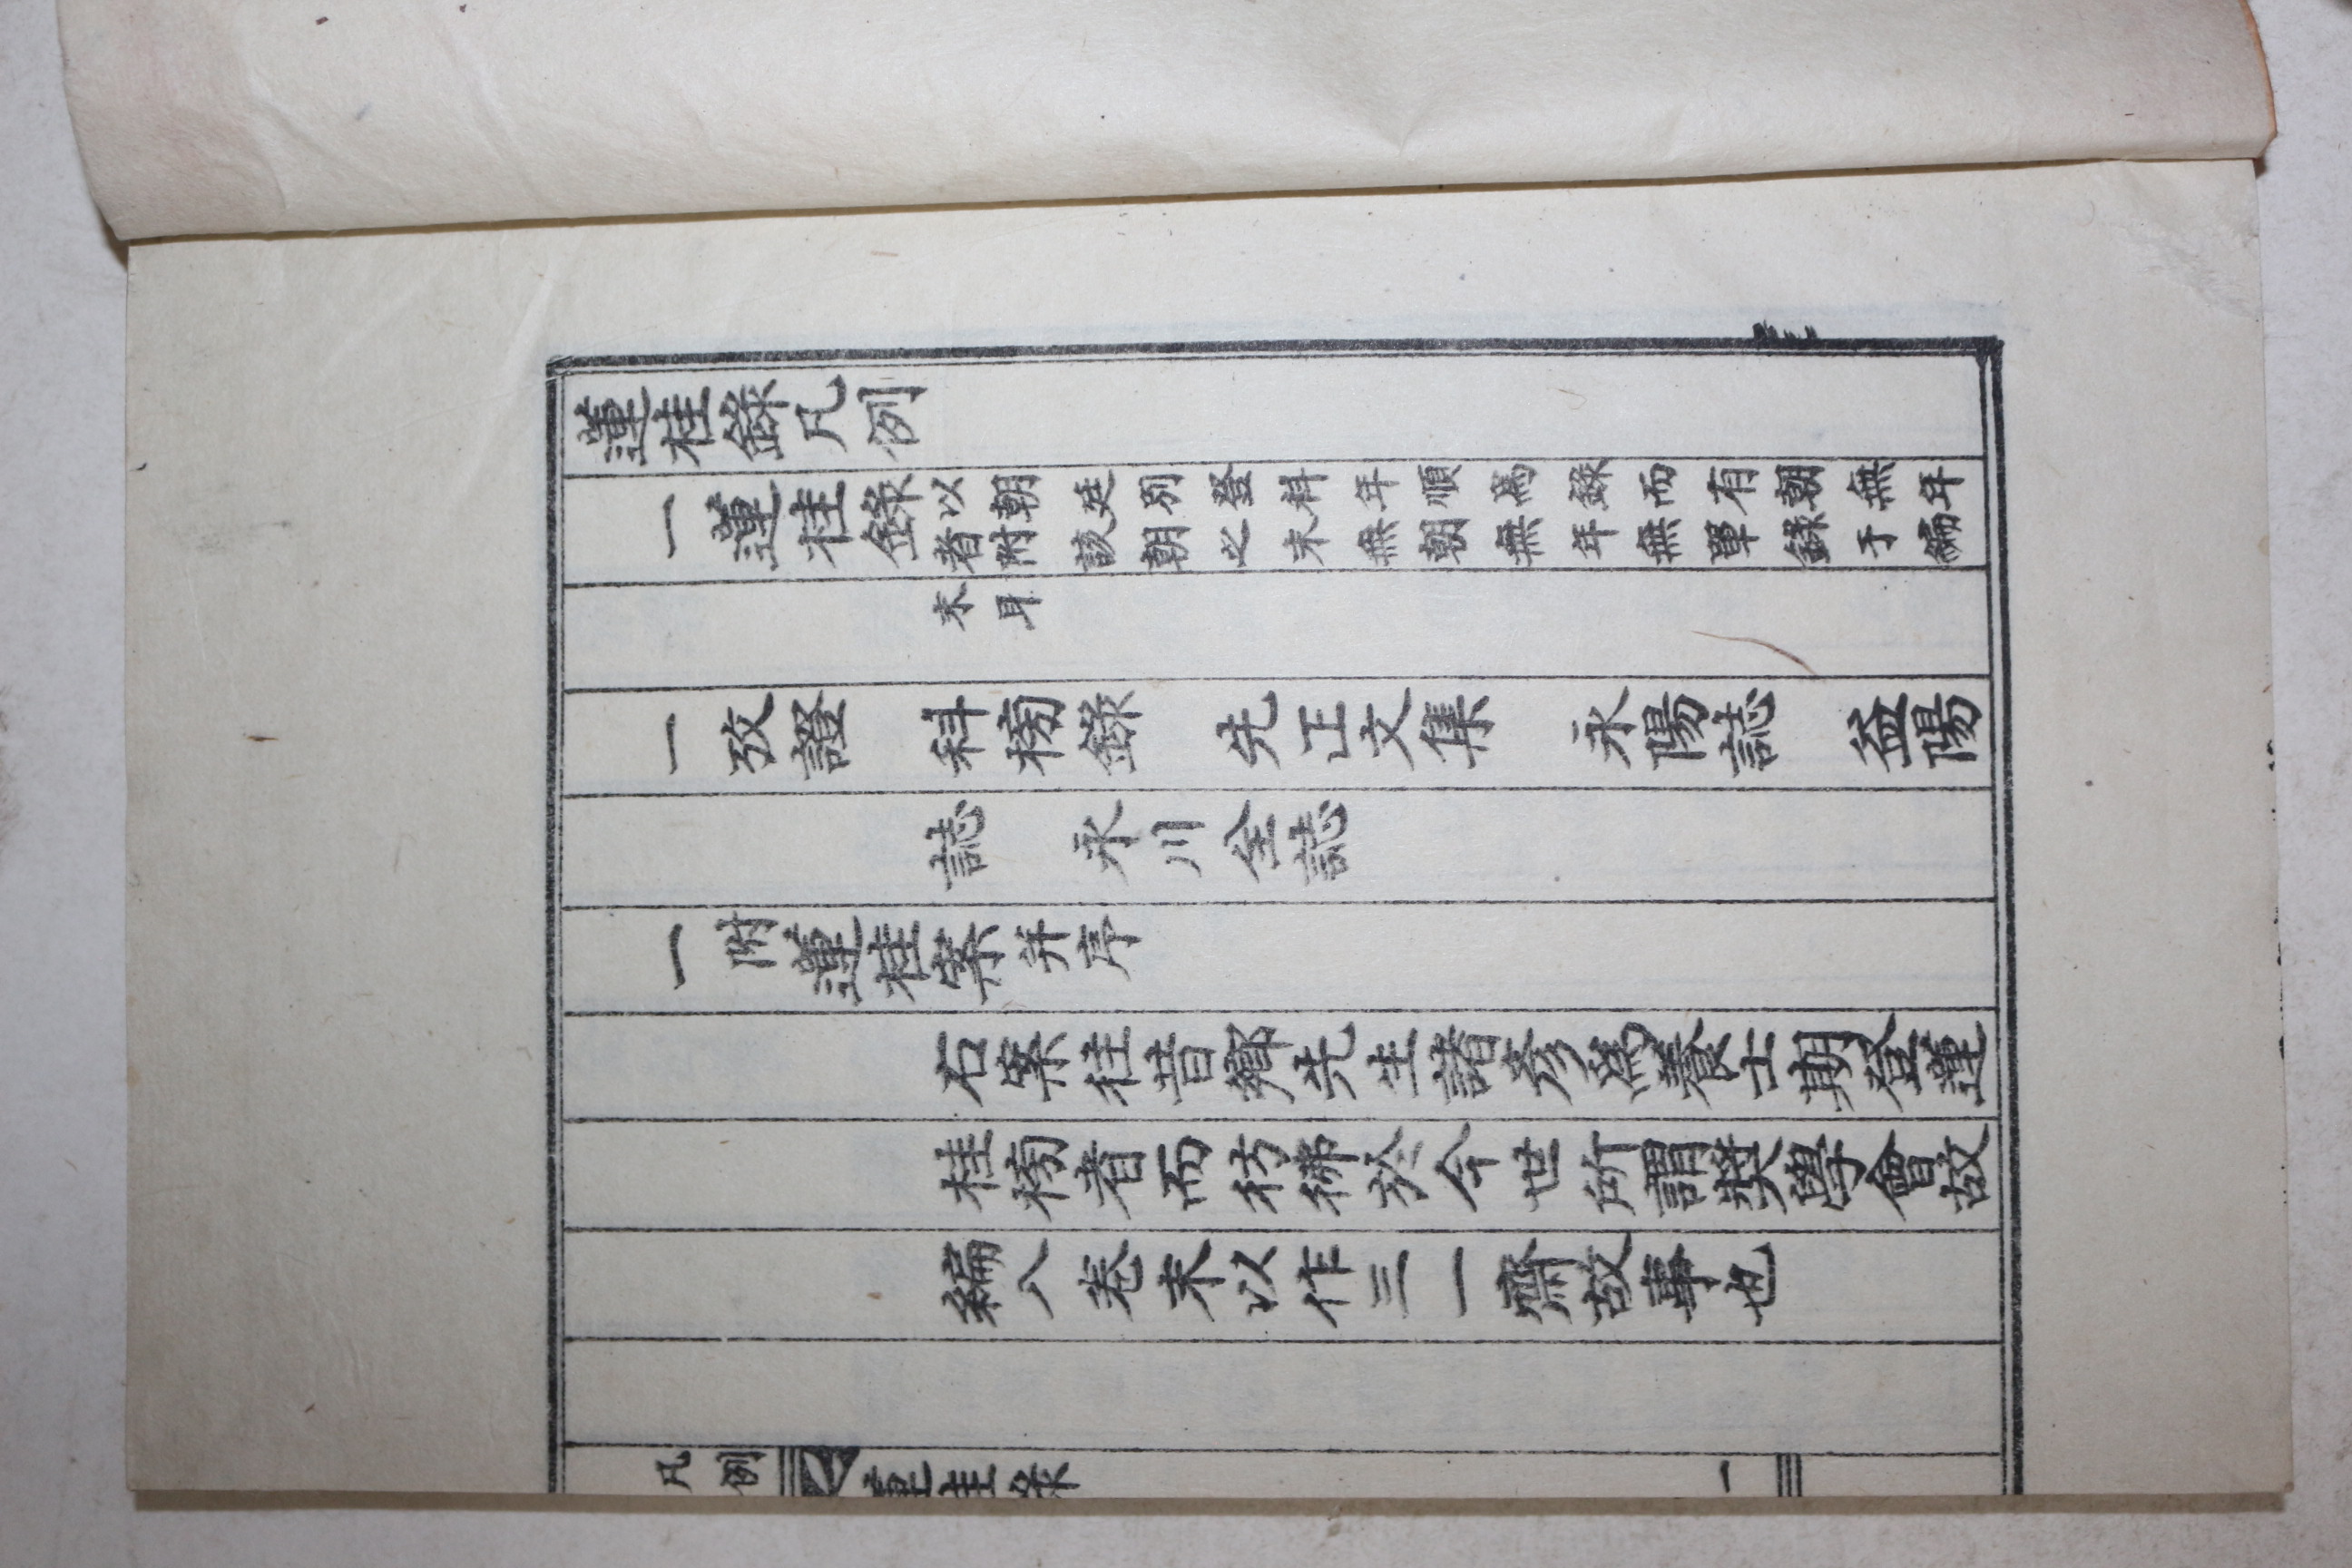 蓮桂錄凡例
一蓮桂錄以朝廷別登科年順爲錄而有朝無年
者附該朝之末無朝無年無單錄于編
末耳
一攷證　科榜錄　先正文集　永陽誌　益陽
誌　永川全誌
一附蓮桂案並序
右案往昔鄉先生諸彥爲養士期登蓮
桂榜者而彷彿於今世所謂獎學會故
編八卷末以作三一齋故事也
凡例
蓮桂錄
一